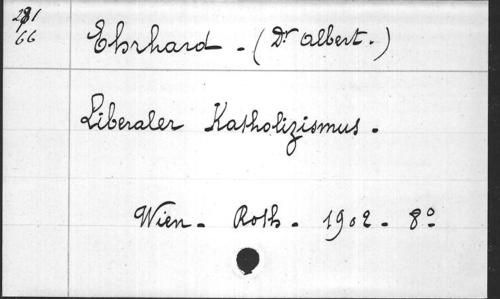 281
66
Ehrhard - (Dr Albert.)
Liberaler Katholizismus.
Wien - Roth - 1902 - 8º